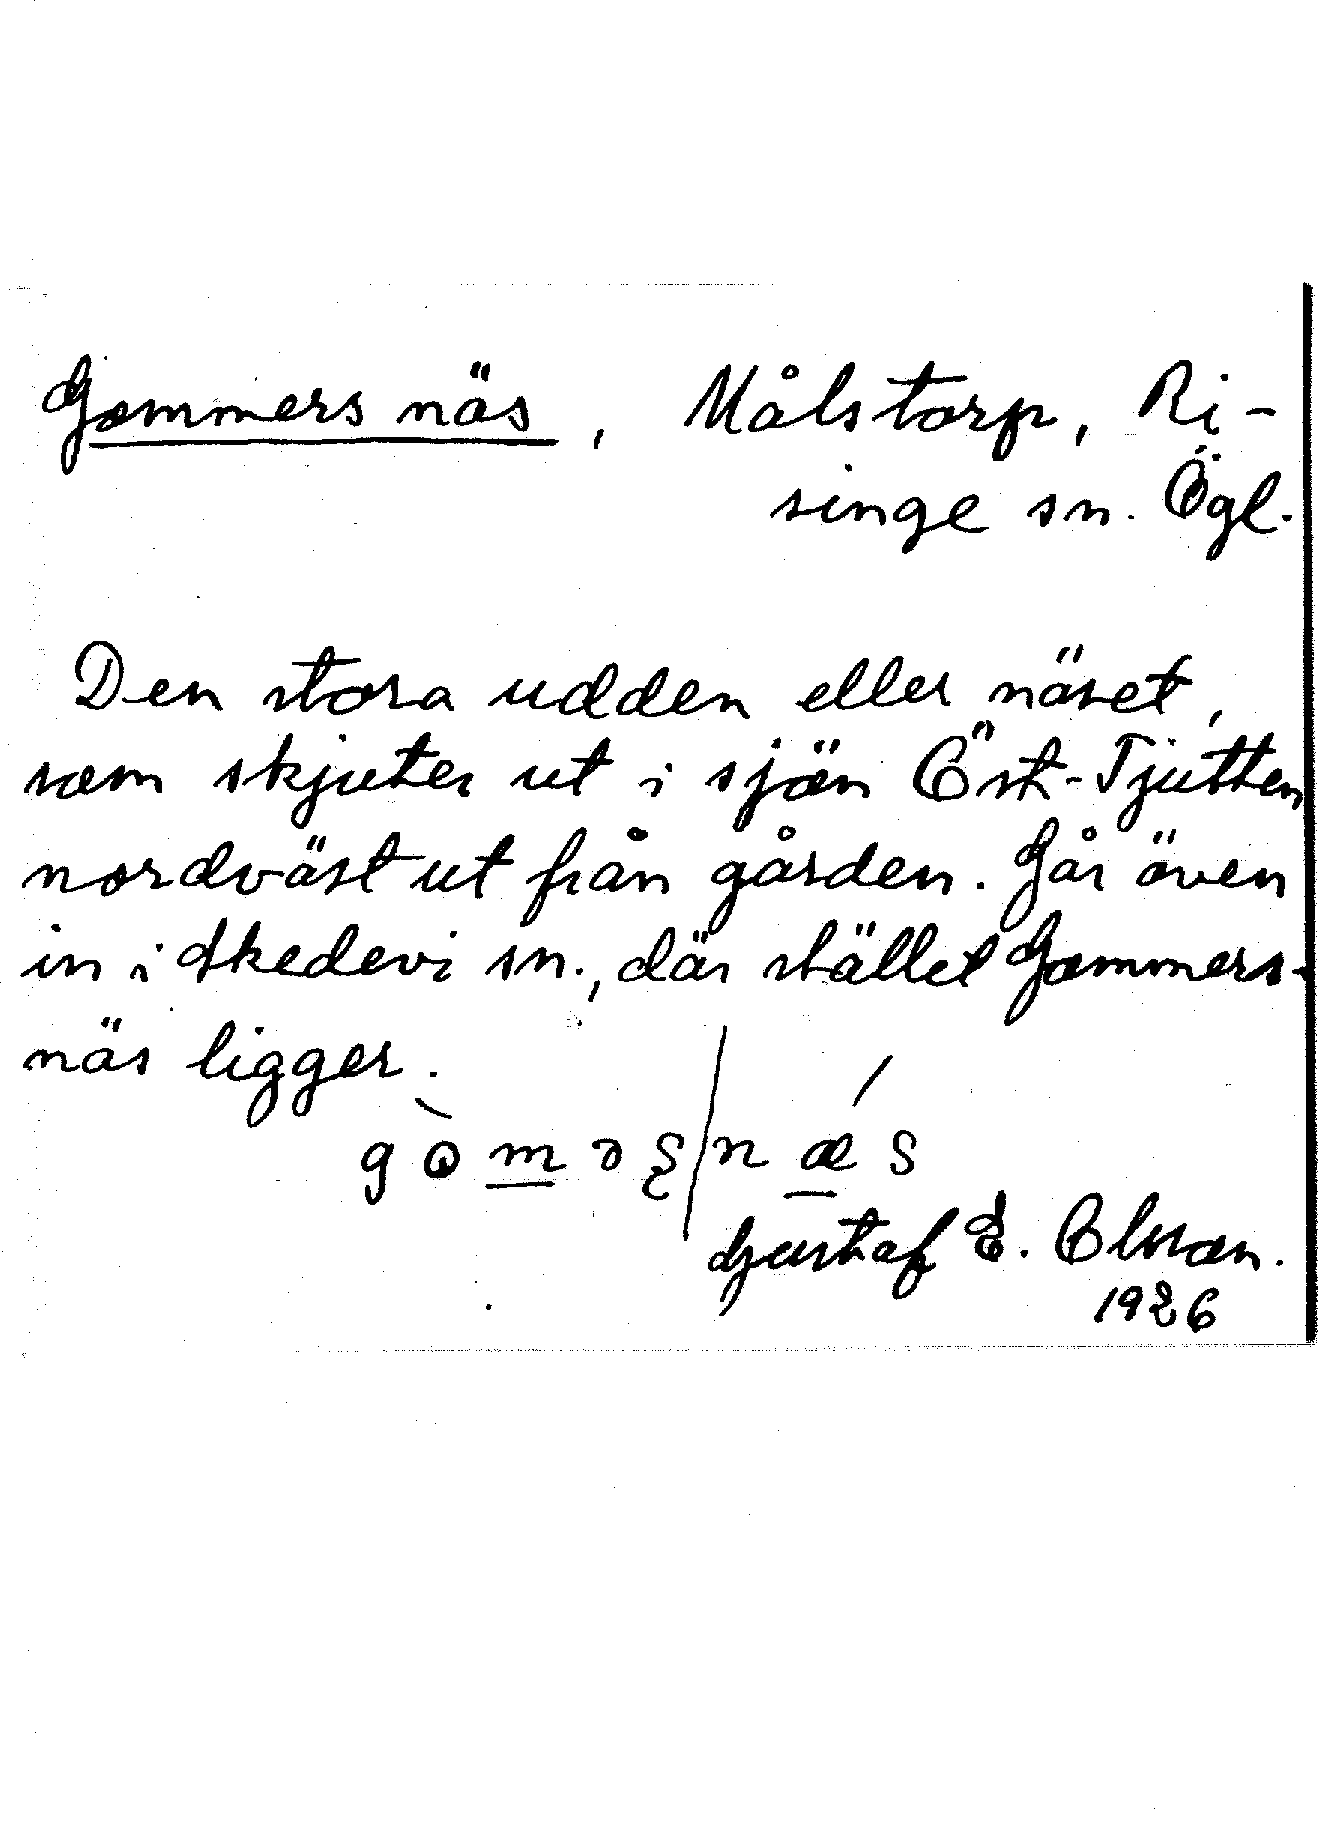 Gommers näs, Målstorp, Ri-
singe sn. Ögl.
Den stora udden eller näset,
som skjuter ut i sjön Öst-Tjutten
nordväst ut från gården. Går även
in i Skedevi sn., där stället Gommers-
näs ligger.
Gustaf E. Olsson.
1926